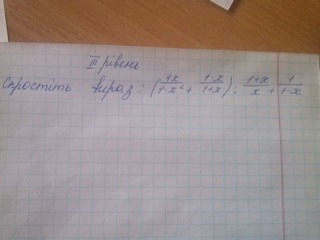 III рівень
Спростіть вираз: (4x/1-x² + 1-x/1+x) : 1+x/x + 1/1-x